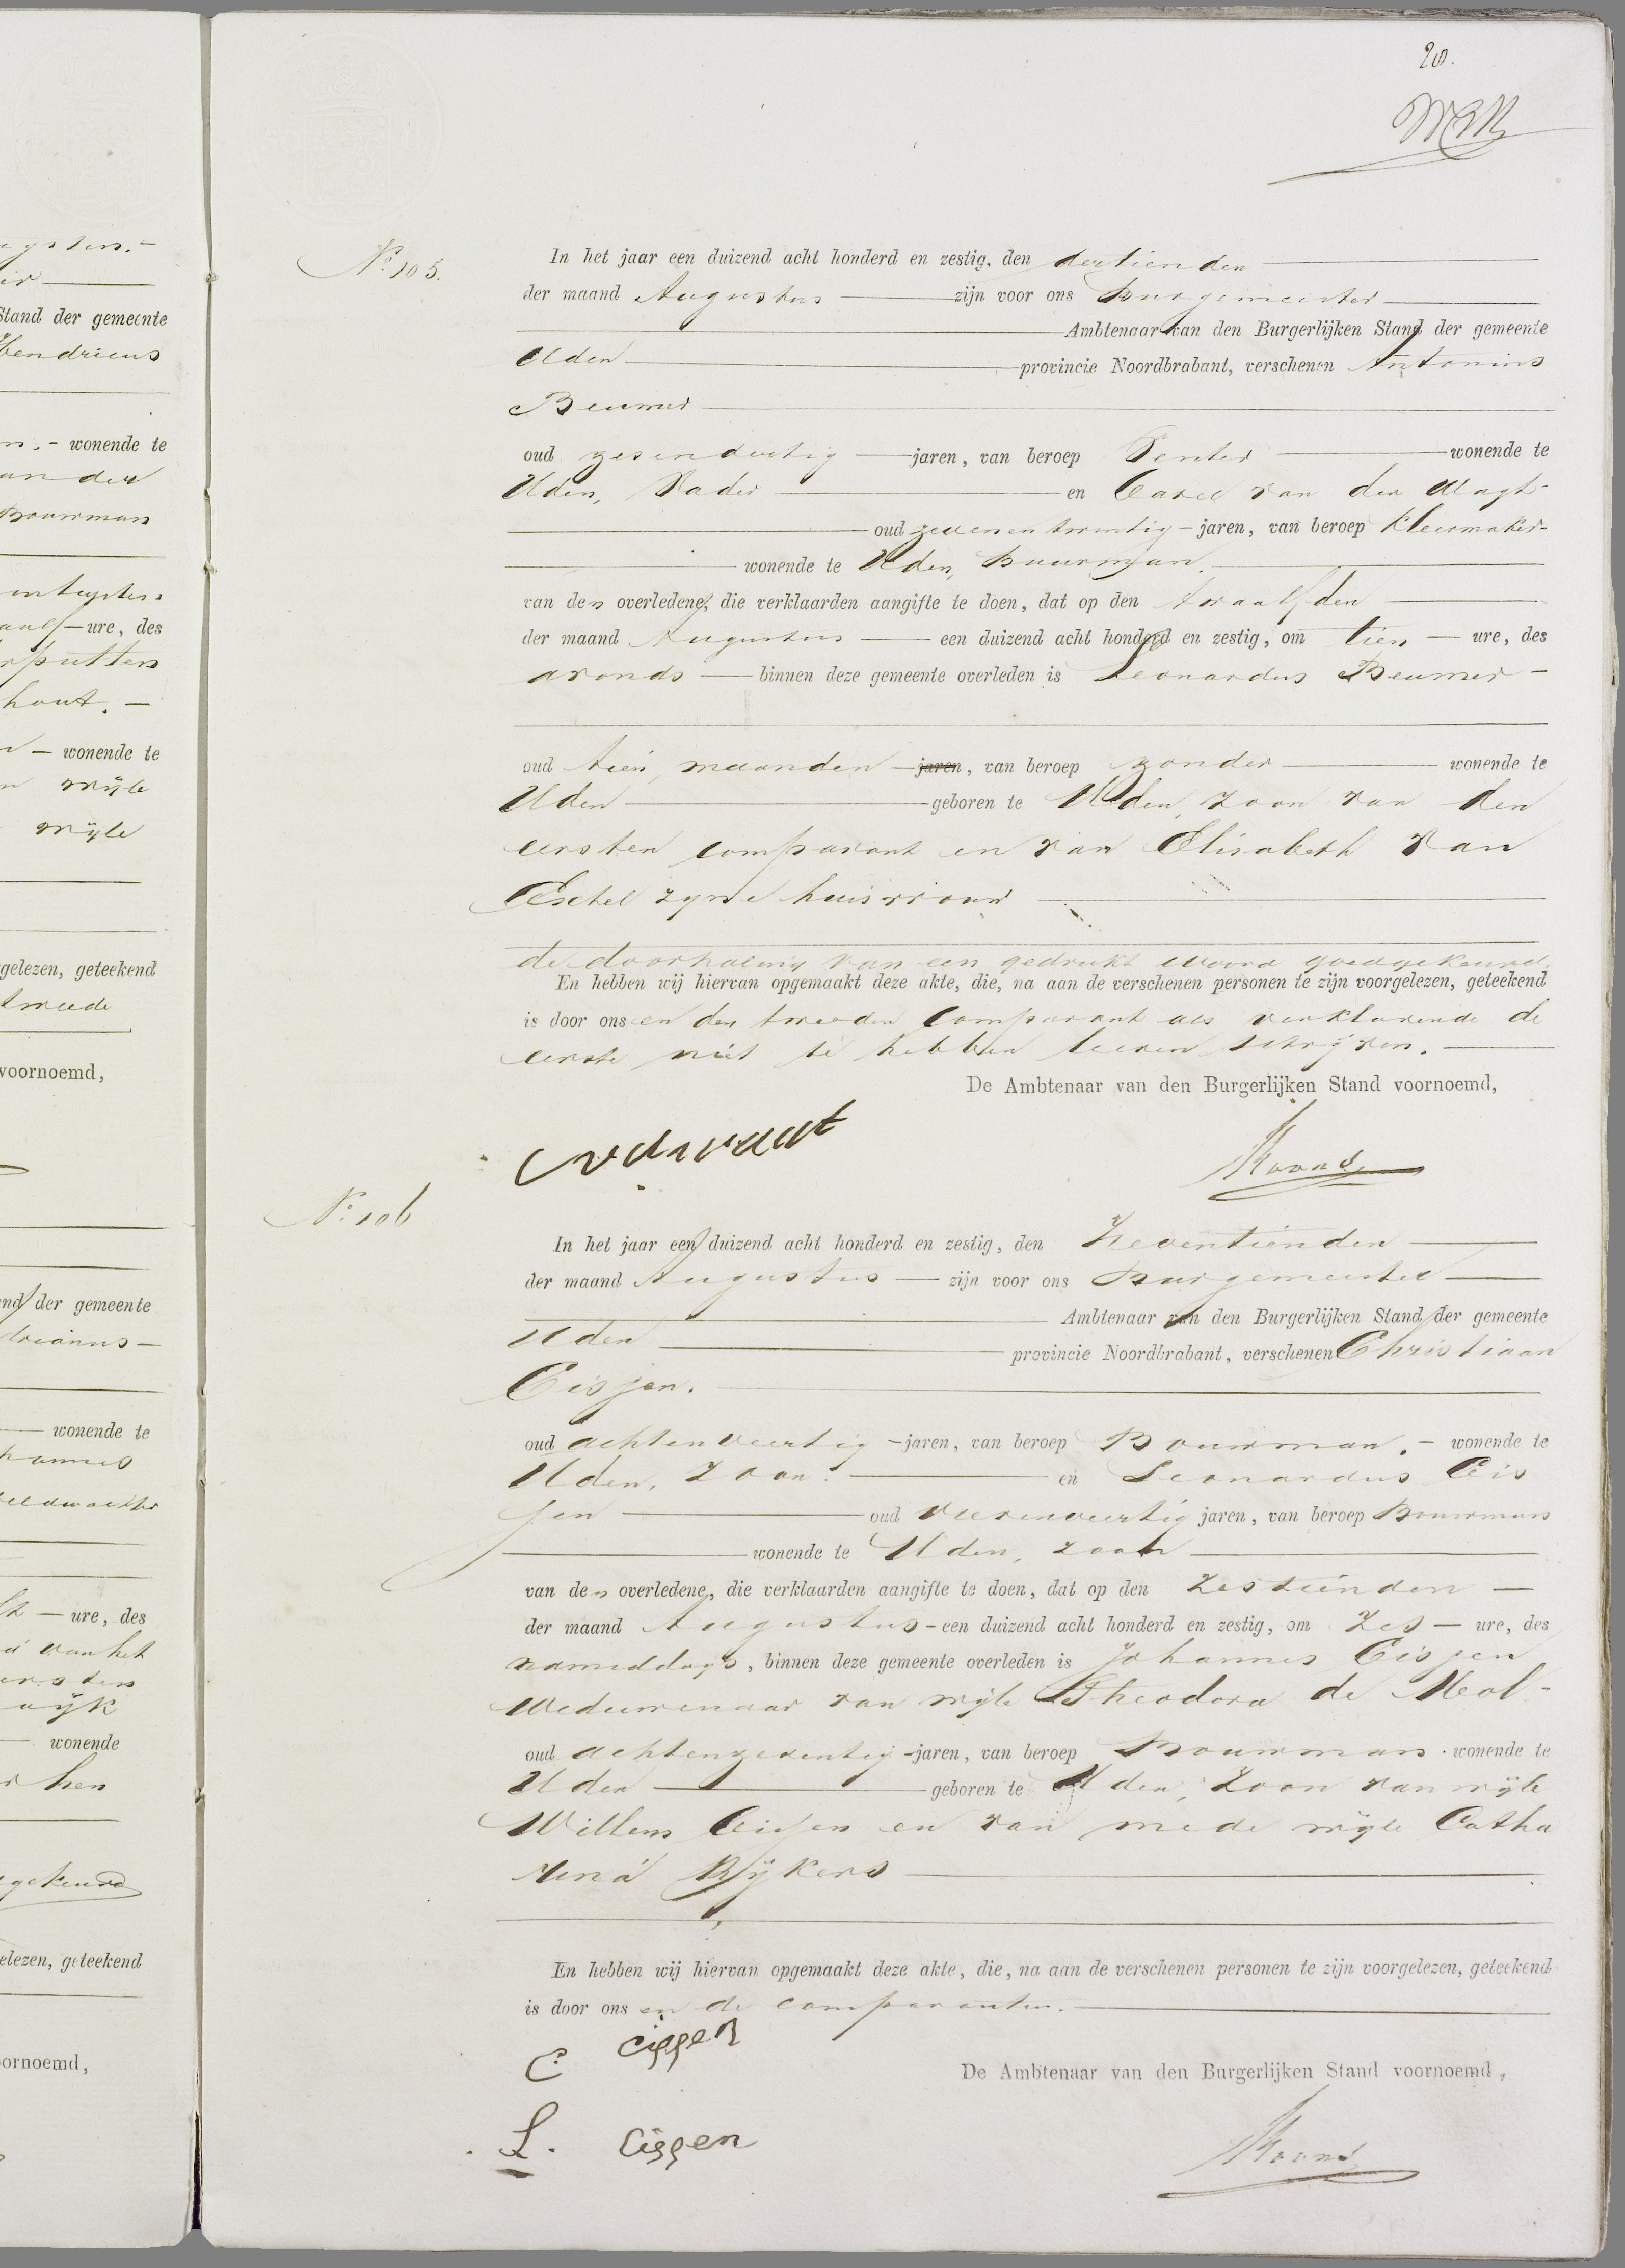 20.
No 105.
In het jaar een duizend acht honderd en zestig, den dertienden
der maand Augustus zijn voor ons Burgemeester
Ambtenaar van den Burgerlijken Stand der gemeente
Uden provincie Noordbrabant, verschenen Antonius
Beumer
oud zesendertig jaren, van beroep Venter wonende te
Uden, Vader en Carel van der Wagt
oud zevenentwintig jaren, van beroep kleermaker
wonende te Uden, Buurman.
van den overledene, die verklaarden aangifte te doen, dat op den twaalfden
der maand Augustus een duizend acht honderd en zestig, om tien ure, des
avonds binnen deze gemeente overleden is Leonardus Beumer
oud tien maanden jaren, van beroep zonder wonende te
Uden geboren te Uden, zoon van den
eersten comparant en van Elisabeth van
Eschel zyne huisvrouw
de doorhaling van een gedrukt woord goedgekeurd.
En hebben wij hiervan opgemaakt deze akte, die, na aan de verschenen personen te zijn voorgelezen, geteekend
is door ons en den tweeden Comparant als verklarende de
eerste niet te hebben leeren schryven.
De Ambtenaar van den Burgerlijken Stand voornoemd,
No 106
In het jaar een duizend acht honderd en zestig, den Zeventienden
der maand Augustus zijn voor ons Burgemeester
Ambtenaar van den Burgerlijken Stand der gemeente
Uden provincie Noordbrabant, verschenen Christiaan
Cisjen.
oud achtenveertig jaren, van beroep Bouwman. wonende te
Uden, Zoon. en Leonardus Cis
jen oud vierenveertig jaren, van beroep Bouwman
wonende te Uden, zoon
van den overledene, die verklaarden aangifte te doen, dat op den Zestienden
der maand Augustus een duizend acht honderd en zestig, om Zes ure, des
namiddags, binnen deze gemeente overleden is Johannes Cisjen
Weduwenaar van wijle Theodora de Mol
oud achtenzeventig jaren, van beroep Bouwman wonende te
Uden geboren te Uden, Zoon van wijle
Willem Cisjen en van mede wijle Catha
rina Rijkers
En hebben wij hiervan opgemaakt deze akte, die, na aan de verschenen personen te zijn voorgelezen, geteekend
is door ons en de comparanten.
C cissen
De Ambtenaar van den Burgerlijken Stand voornoemd,
L. Cissen